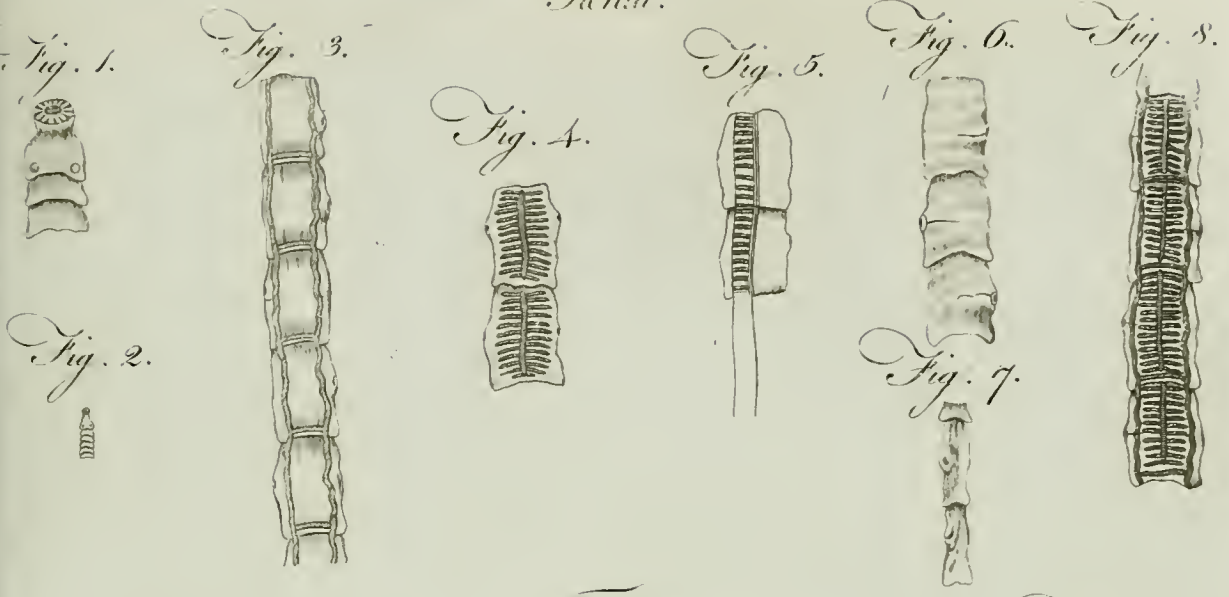 Fig. 1.
Fig. 3.
Fig. 4.
Fig. 5.
Fig. 6.
Fig. 8.
Fig. 2.
Fig. 7.